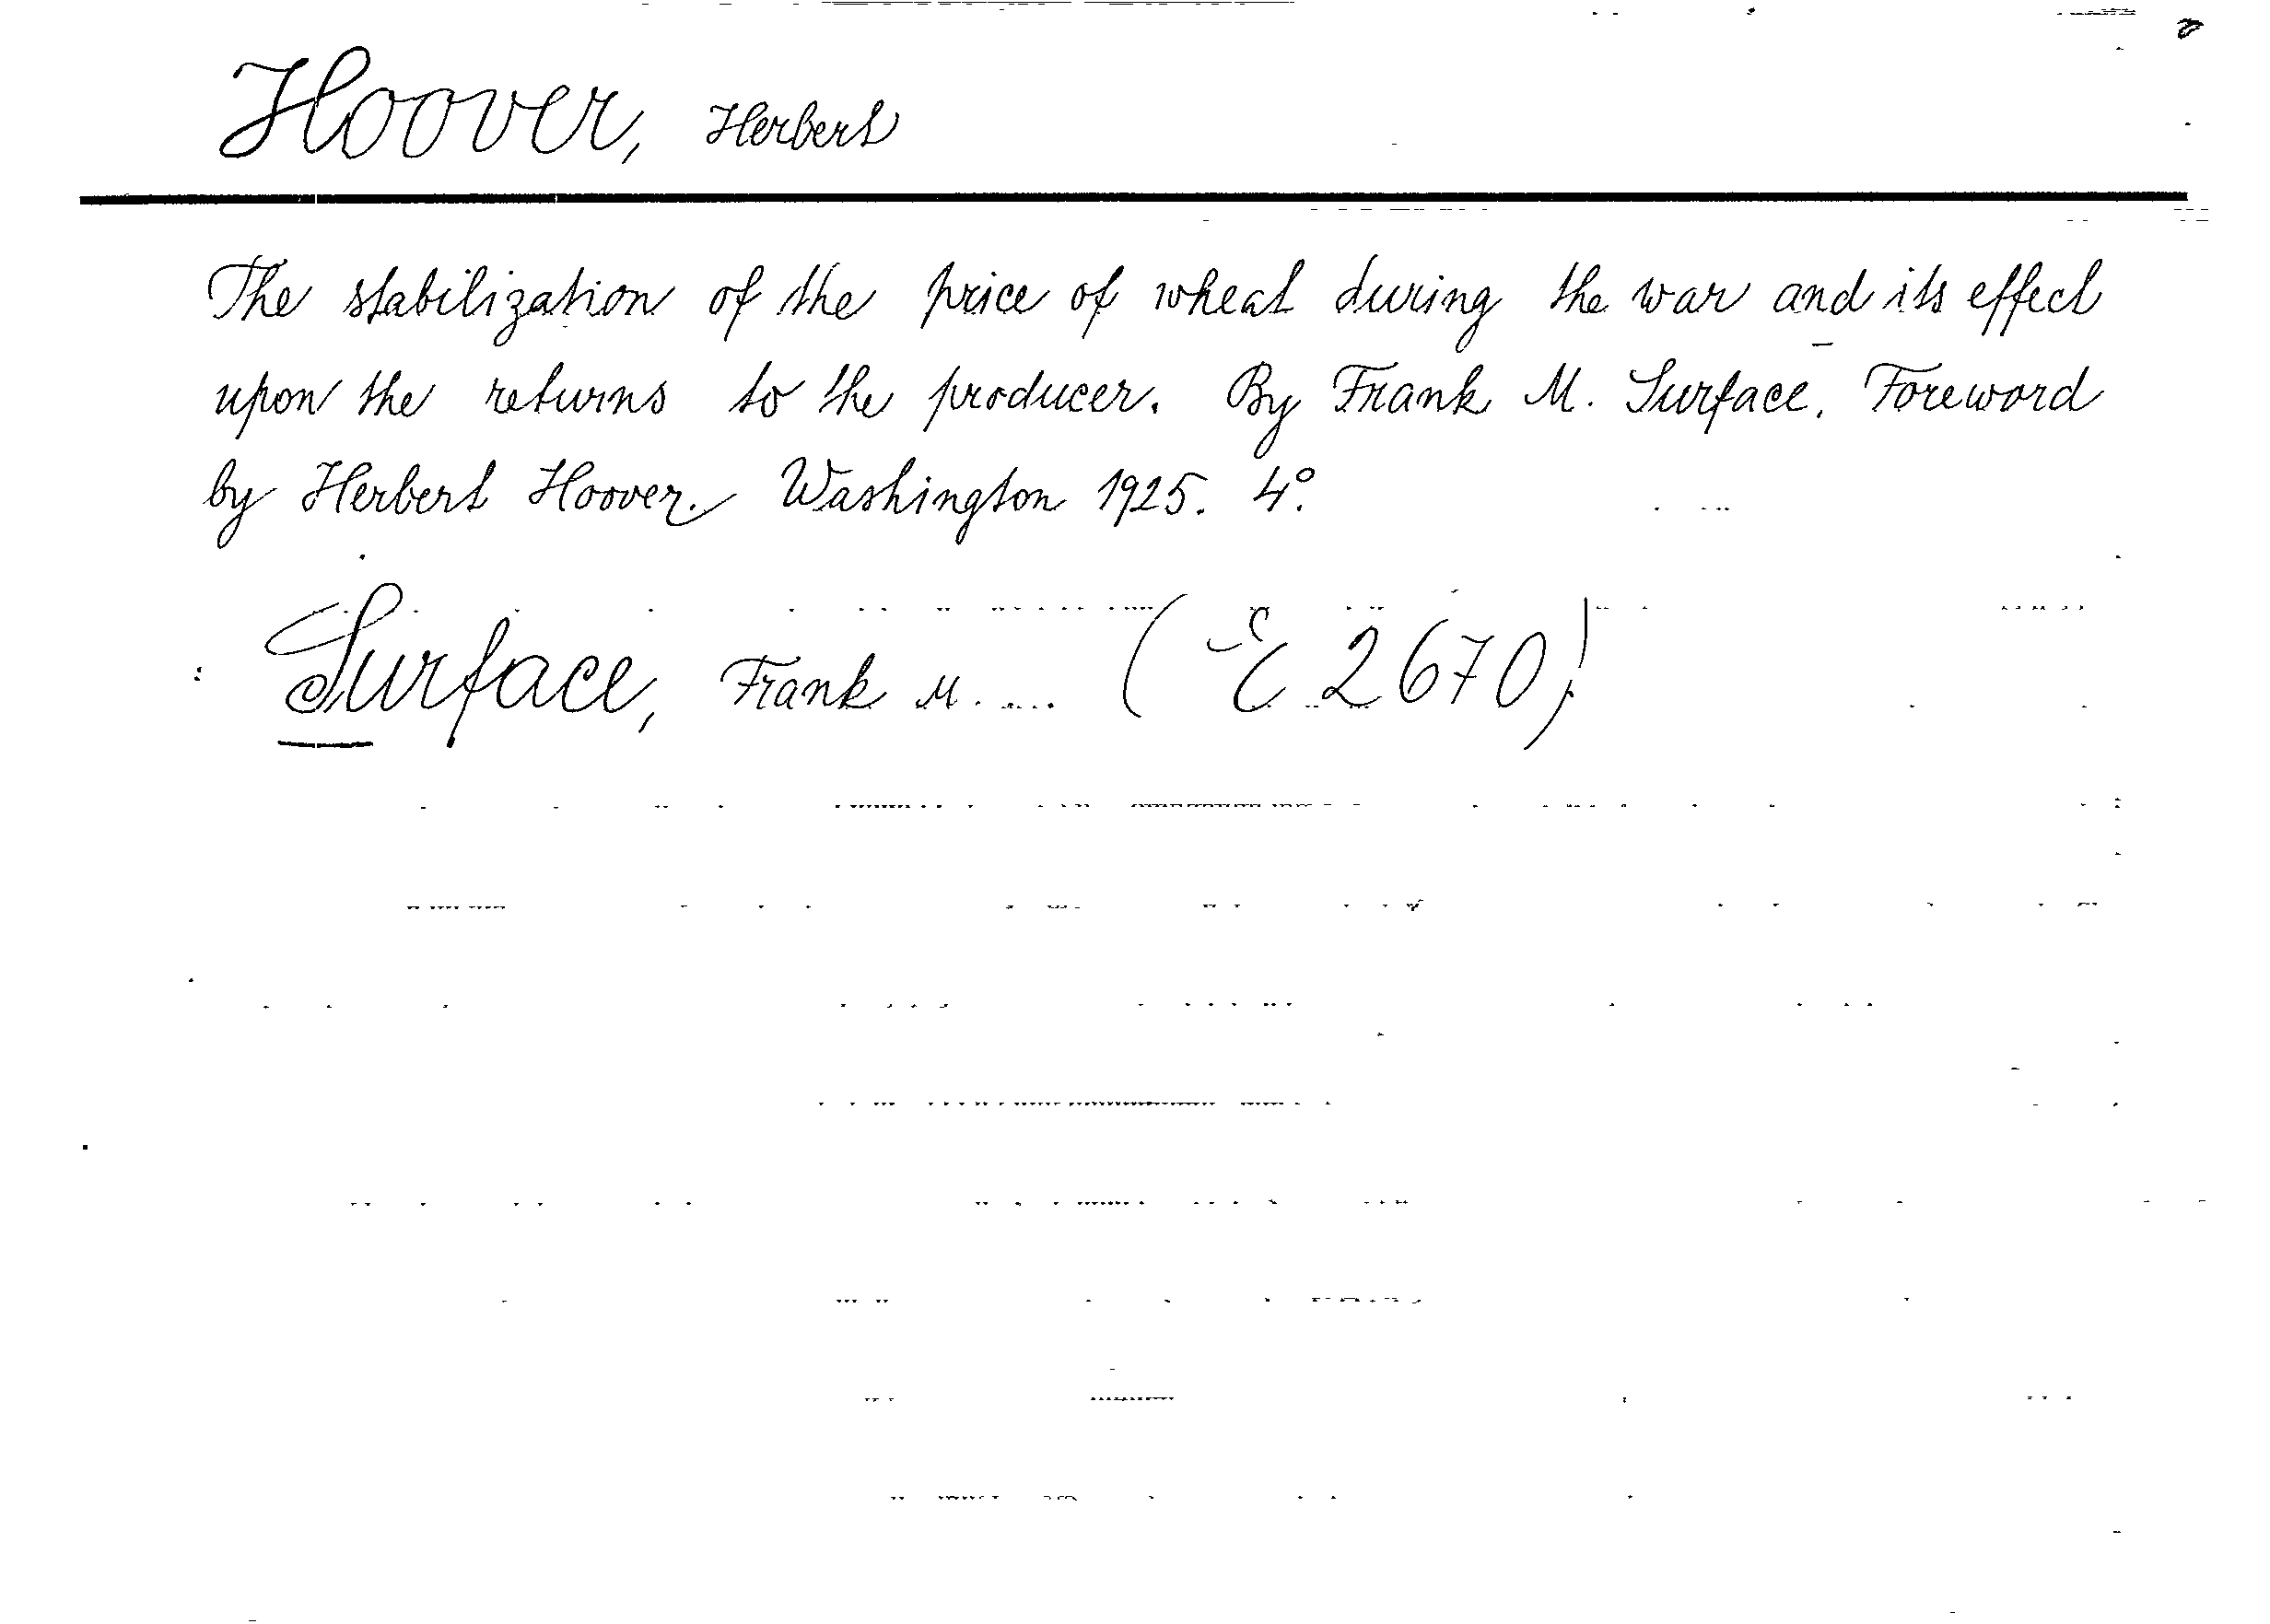 Hoover, Herbert
The stabilization of the price of wheat during the war and its effect
upon the returns to the producer. By Frank M. Surface. Foreword
by Herbert Hoover. Washington 1925. 4°.
Surface, Frank M. (E 2670)